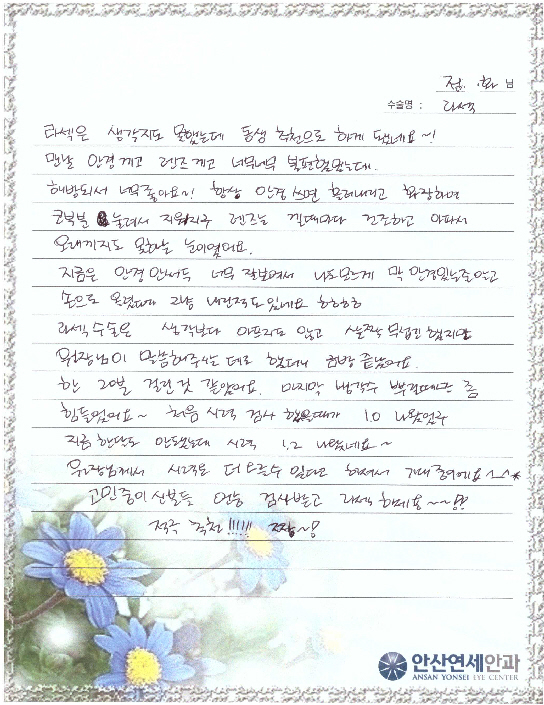 정. 화 님
수술명 : 라섹
라섹은 생각지도 못했는데 동생 추천으로 하게 됐네요~!
맨날 안경 끼고 렌즈 끼고 너무너무 불편했었는데.
해방되서 너무 좋아요~! 항상 안경 쓰면 흘러내리고 화장하면
콧부분 눌려서 지워지구 렌즈는 낄때마다 건조하고 아파서
오래끼지도 못하는 눈이였어요.
지금은 안경 안써두 너무 잘보여서 나도모르게 막 안경있는줄알고
손으로 올렸다가 그냥 내린적도 있네요 하하하하
라섹 수술은 생각보다 아프지도 않고 살짝 무섭긴 했지만
원장님이 말씀해주신 데로 했더니 금방 끝났어요.
한 20분 걸린것 같았어요. 마지막 냉각수 뿌릴때만 좀
힘들었어요~ 처음 시력 검사 했을때가 1.0 나왔었구
지금 한달도 안됐는데 시력 1.2 나왔네요~
원장님께서 시력은 더 오를수 있다고 하셔서 기대 중이에요^-^*
고민중이신분들 얼능 검사받고 라섹 하세요~~!!
적극 추천!!!!!! 짱~!
안산연세안과
ANSAN YONSEI EYE CENTER